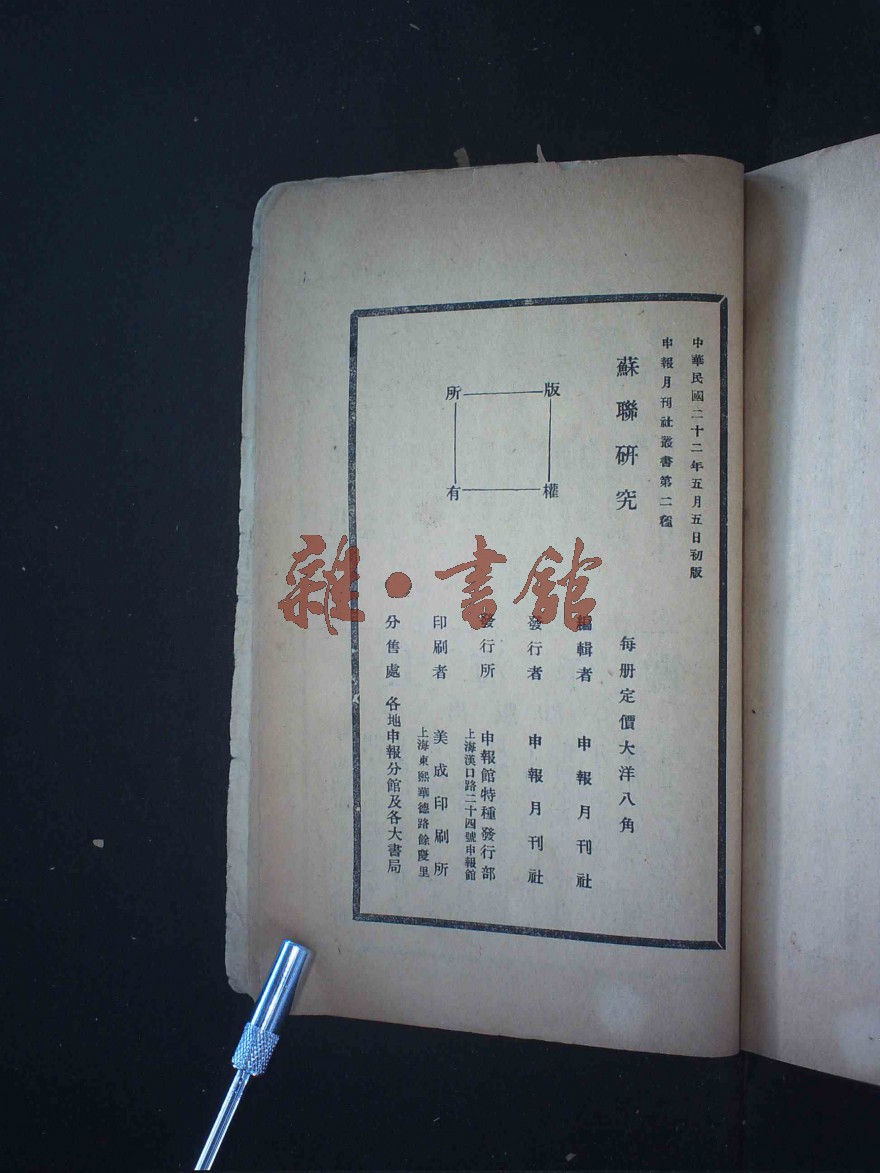 中華民國二十二年五月五日初版
申報月刊社叢書第二種
蘇聯研究
每册定價大洋八角
版權所有
編輯者 申報月刊社
發行者 申報月刊社
發行所 申報館特種發行部
上海漢口路二十四號申報館
印刷者 美成印刷所
上海東熙華德路餘慶里
分售處 各地申報分館及各大書局
雜·書館